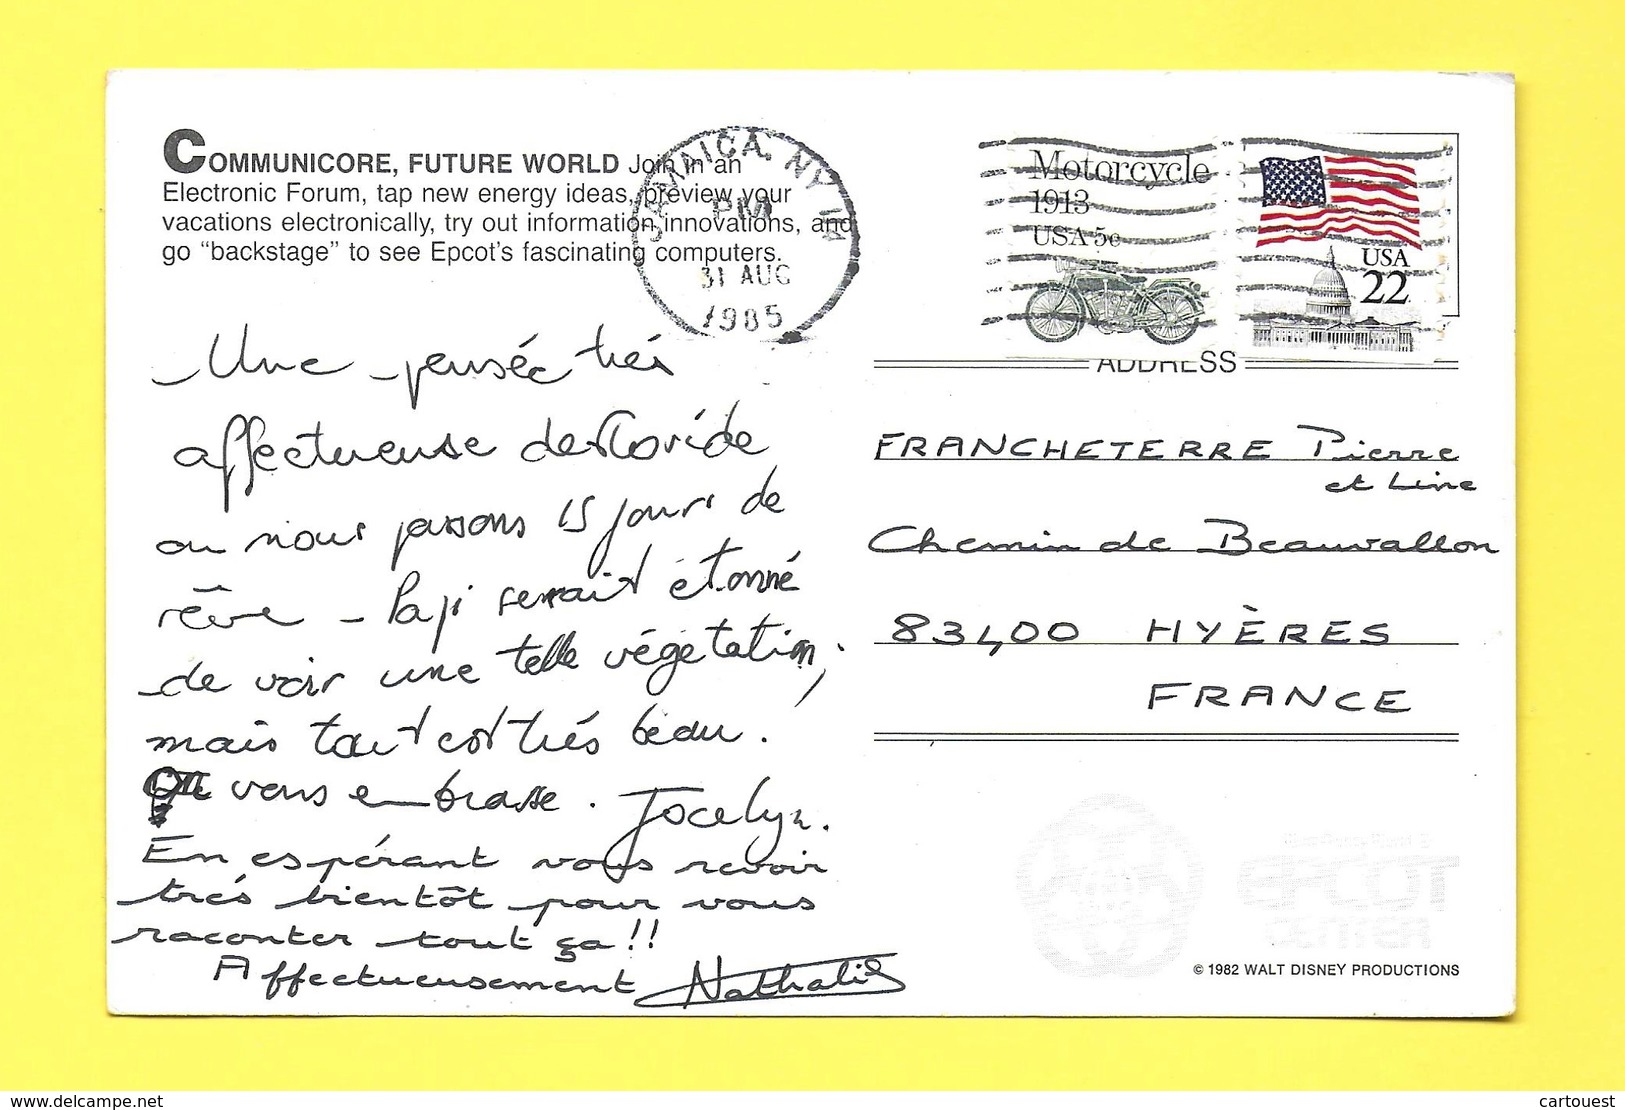 COMMUNICORE, FUTURE WORLD Join in an
Electronic Forum, tap new energy ideas, preview your
vacations electronically, try out information innovations, and
go “backstage” to see Epcot’s fascinating computers.
JAMAICA, NY
PM
31 AUG
1985
Motorcycle
1913
USA 5c
USA
22
ADDRESS
Une pensée très
affectueuse de Floride
ou nous passons 15 jours de
rêve – Papi serait étonné
de voir une telle végétation,
mais tout est très beau.
On vous embrasse. Jocelyn.
En espérant vous revoir
très bientôt pour vous
raconter tout ça!!
Affectueusement Nathalie
FRANCHETERRE Pierre
et Line
Chemin de Beauvallon
83400 HYÈRES
FRANCE
EPCOT
CENTER
© 1982 WALT DISNEY PRODUCTIONS
https://www.delcampe.net
cartouest